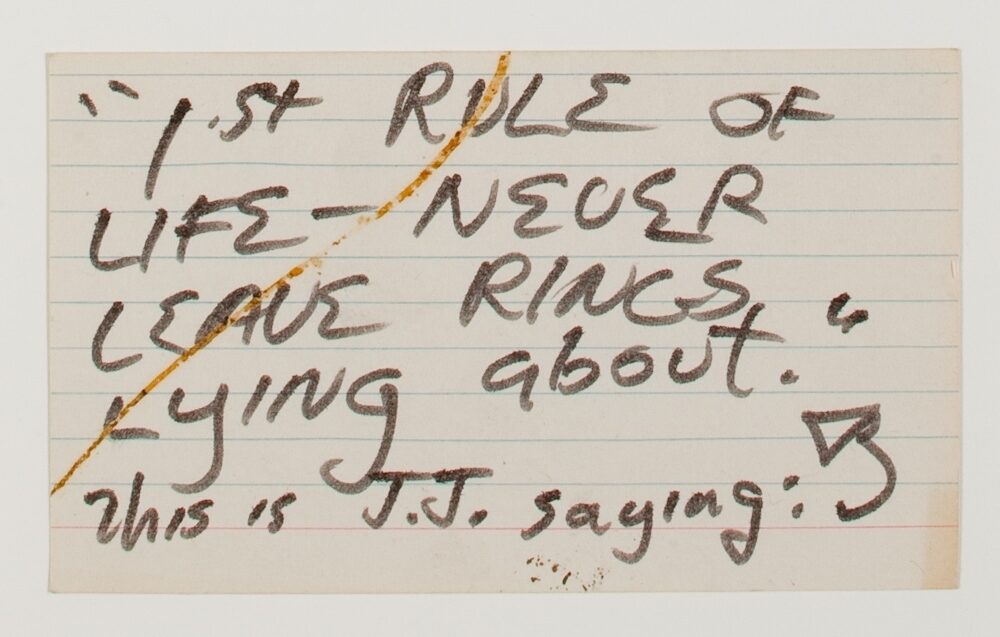 "1.st RULE OF
LIFE - NEVER
LEAVE RINGS
LYING about."
This is J.J. saying: